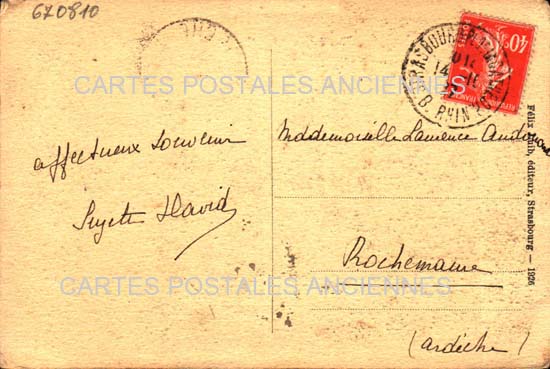 670810
STRASBOURG
14
B. RHIN
40
REPUBLIQUE FRANCAISE
CARTES POSTALES ANCIENNES
affectueux souvenir
Suzette David
Mademoiselle Laurence
Rochemaure
(Ardèche)
CARTES POSTALES ANCIENNES
Félix Luib, éditeur, Strasbourg — 1926